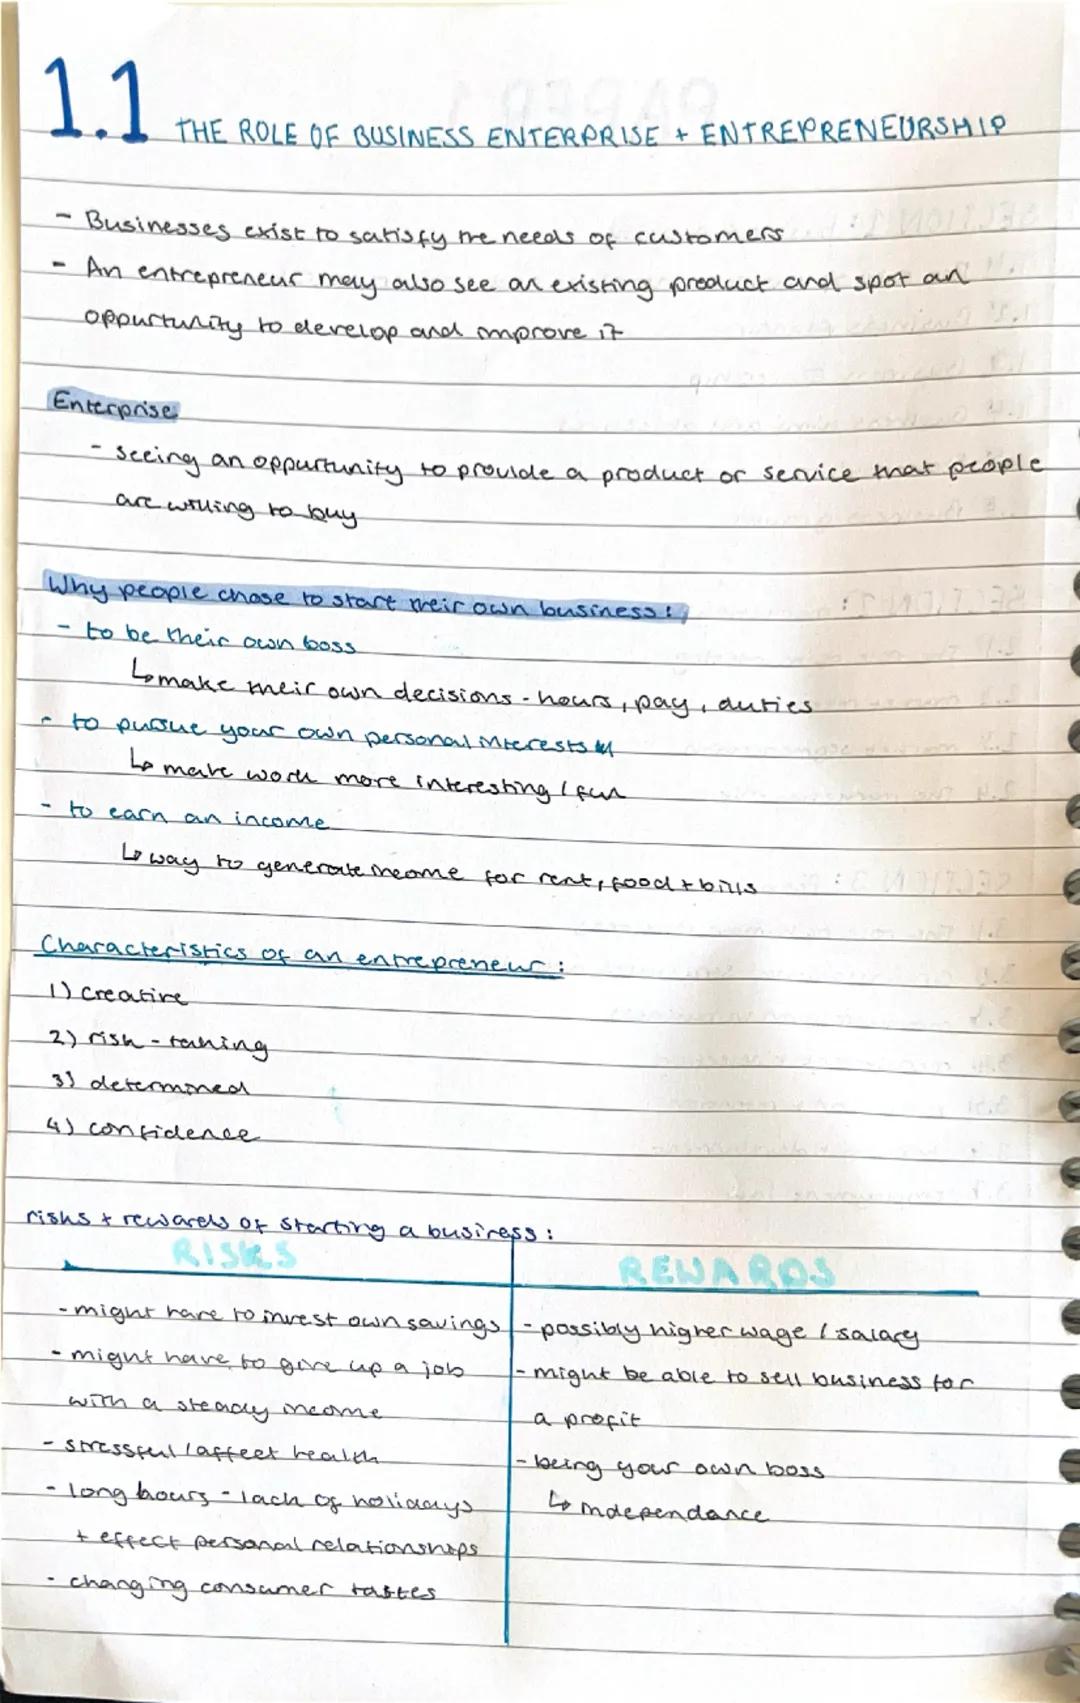 1.1 THE ROLE OF BUSINESS ENTERPRISE + ENTREPRENEURSHIP
- Businesses exist to satisfy the needs of customers
- An entrepreneur may also see an existing product and spot an
oppurtunity to develop and improve it
Enterprise
- seeing an oppurtunity to provide a product or service that people
are willing to buy
Why people chose to start their own business:
- to be their own boss
↳ make their own decisions - hours, pay, duties
- to pursue your own personal interests
↳ make work more interesting / fun
- to earn an income
↳ way to generate income for rent, food + bills
Characteristics of an entrepreneur:
1) creative
2) risk-taking
3) determined
4) confidence
risks + rewards of starting a business:
RISKS
- might have to invest own savings
- might have to give up a job
with a steady income
- stressful / affect health
- long hours - lack of holidays
+ effect personal relationships
- changing consumer tastes
REWARDS
- possibly higher wage / salary
- might be able to sell business for
a profit
- being your own boss
↳ independance